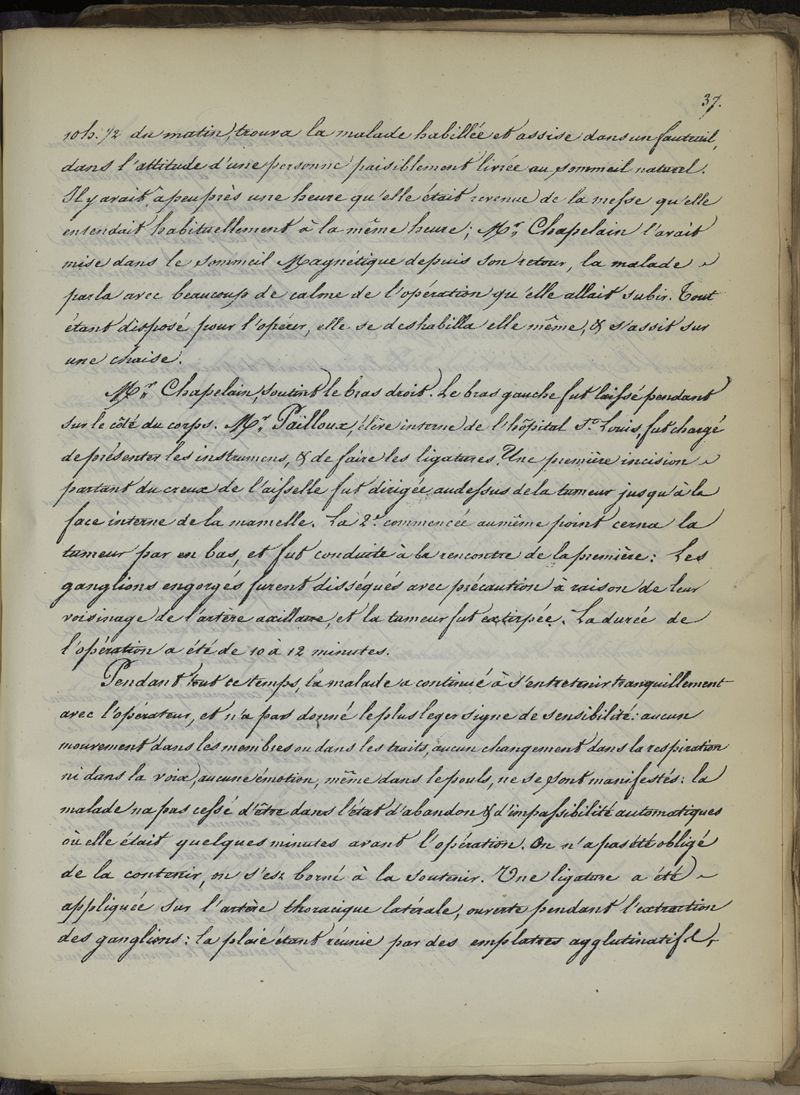 37.
10h. 1/2 du matin, trouva la malade habillée et assise dans un fauteuil,
dans l'attitude d'une personne paisiblement livrée au sommeil naturel.
Il y avait à peu près une heure qu'elle était revenue de la messe qu'elle
entendait habituellement à la même heure; Mr. Chapelain l'avait
mise dans le sommeil Magnétique depuis son retour, la malade
parla avec beaucoup de calme de l'opération qu'elle allait subir. Tout
étant disposé pour l'opérer, elle se deshabilla elle même, & s'assit sur
une chaise.
Mr. Chapelain soutint le bras droit. Le bras gauche fut laissé pendant
sur le côté du corps. Mr. Pailloux, élève interne de l'hôpital St. Louis, fut chargé
de présenter les instrumens, & de faire les ligatures. Une première incision
partant du creux de l'aisselle fut dirigée au dessus de la tumeur jusqu'à la
face interne de la mamelle. La 2e commencée au même point cerna la
tumeur par en bas, et fut conduite à la rencontre de la première: Les
ganglions engorgés furent disséqués avec précaution à raison de leur
voisinage de l'artère axillaire, et la tumeur fut extirpée. La durée de
l'opération a été de 10 à 12 minutes.
Pendant tout ce temps, la malade a continué à s'entretenir tranquillement
avec l'opérateur, et n'a pas donné le plus leger signe de sensibilité: aucun
mouvement dans les membres ou dans les traits, aucun changement dans la respiration
ni dans la voix, aucune émotion, même dans le pouls, ne se sont manifestés: la
malade n'a pas cessé d'être dans l'état d'abandon & d'impassibilité automatiques
où elle était quelques minutes avant l'opération. On n'a pas été obligé
de la contenir, on s'est borné à la soutenir. Une ligature a été
appliquée sur l'artère thoracique latérale, ouverte pendant l'extraction
des ganglions: la plaie étant réunie par des emplatres agglutinatifs,